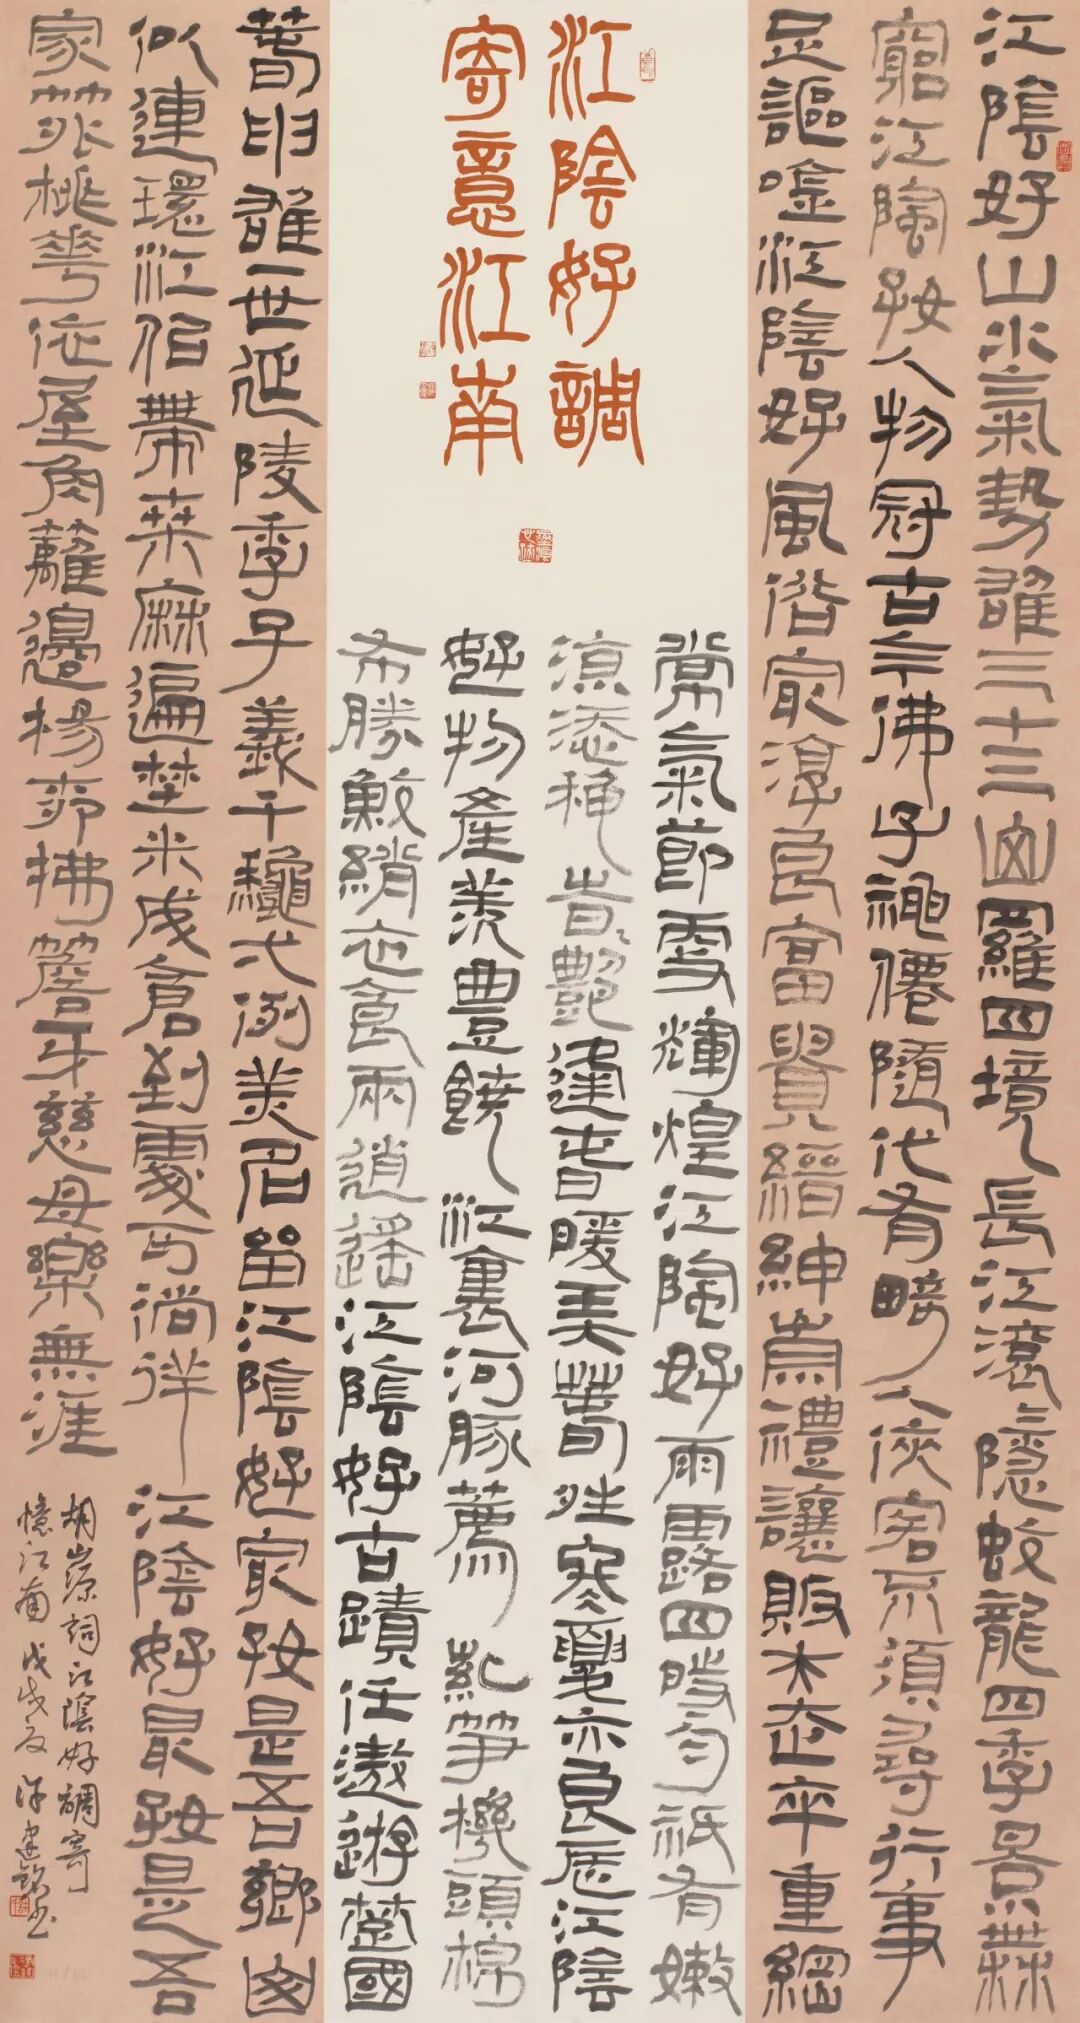 江陰好調
寄意江南
江陰好山水氣勢雄三十三山羅四境長江滾滾隱蛟龍四季景無
窮江陰好人物冠古今佛子神僊隨代有畸人俠客不須尋行事
足謳唫江陰好風俗最淳良富貴縉紳崇禮讓販夫走卒重綱
常氣節更輝煌江陰好雨露四時勻祇有嫩
涼添穐艷暖美萅夏亦良辰江陰
好物產羨豐饒江裏河豚薦紫筍機頭棉
布勝鮫綃衣食兩逍遙江陰好古蹟任遨遊楚國
萅申雄一世延陵季子義千穐弌例美名留江陰好最好是吾鄉山
似連環江佀帶桑麻遍埜米成倉到處可徜徉江陰好最好是吾
家竹外桃華依屋角籬邊楊柳拂簷牙慈母樂無涯
胡山源詞江陰好調寄
憶江南戊戌夏許建銘书